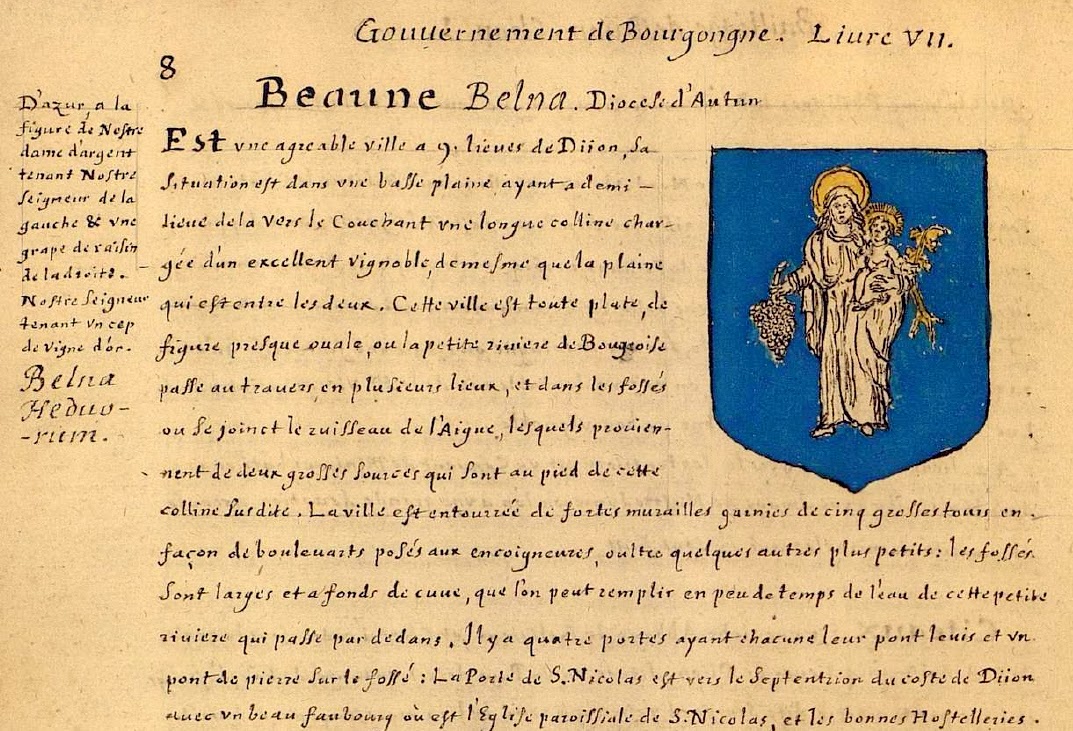 Gouuernement de Bourgongne. Liure VII.
8
Beaune Belna. Diocese d'Autun
D'azur, a la
figure de Nostre
dame d'argent
tenant Nostre
Seigneur de la
gauche & vne
grape de raisin
de la droite.
Nostre Seigneur
tenant vn cep
de vigne d'or.
Belna
Heduo-
-rum.
Est vne agreable ville a 9. lieues de Diion, sa
situation est dans vne basse plaine ayant a demi-
lieue de la vers le Couchant vne longue colline char-
gée d'un excellent vignoble, de mesme que la plaine
qui est entre les deux. Cette ville est toute plate, de
figure presque ouale, ou la petite riuiere de Bougeoise
passe au trauers en plusieurs lieux, et dans les fossés
ou se joinct le ruisseau de l'Aigue, lesquels prouien-
nent de deux grosses sources qui sont au pied de cette
colline susdite. La ville est entourrée de fortes murailles garnies de cinq grosses tours en
façon de bouleuarts posés aux encoigneures, oultre quelques autres plus petits: les fossés
sont larges et a fonds de cuue, que l'on peut remplir en peu de temps de l'eau de cette petite
riuiere qui passe par dedans. Il y a quatre portes ayant chacune leur pont leuis et vn
pont de pierre sur le fossé: La Porte de S. Nicolas est vers le Septentrion du coste de Diion
auec vn beau faubourg où est l'Eglise paroissiale de S. Nicolas, et les bonnes Hostelleries.